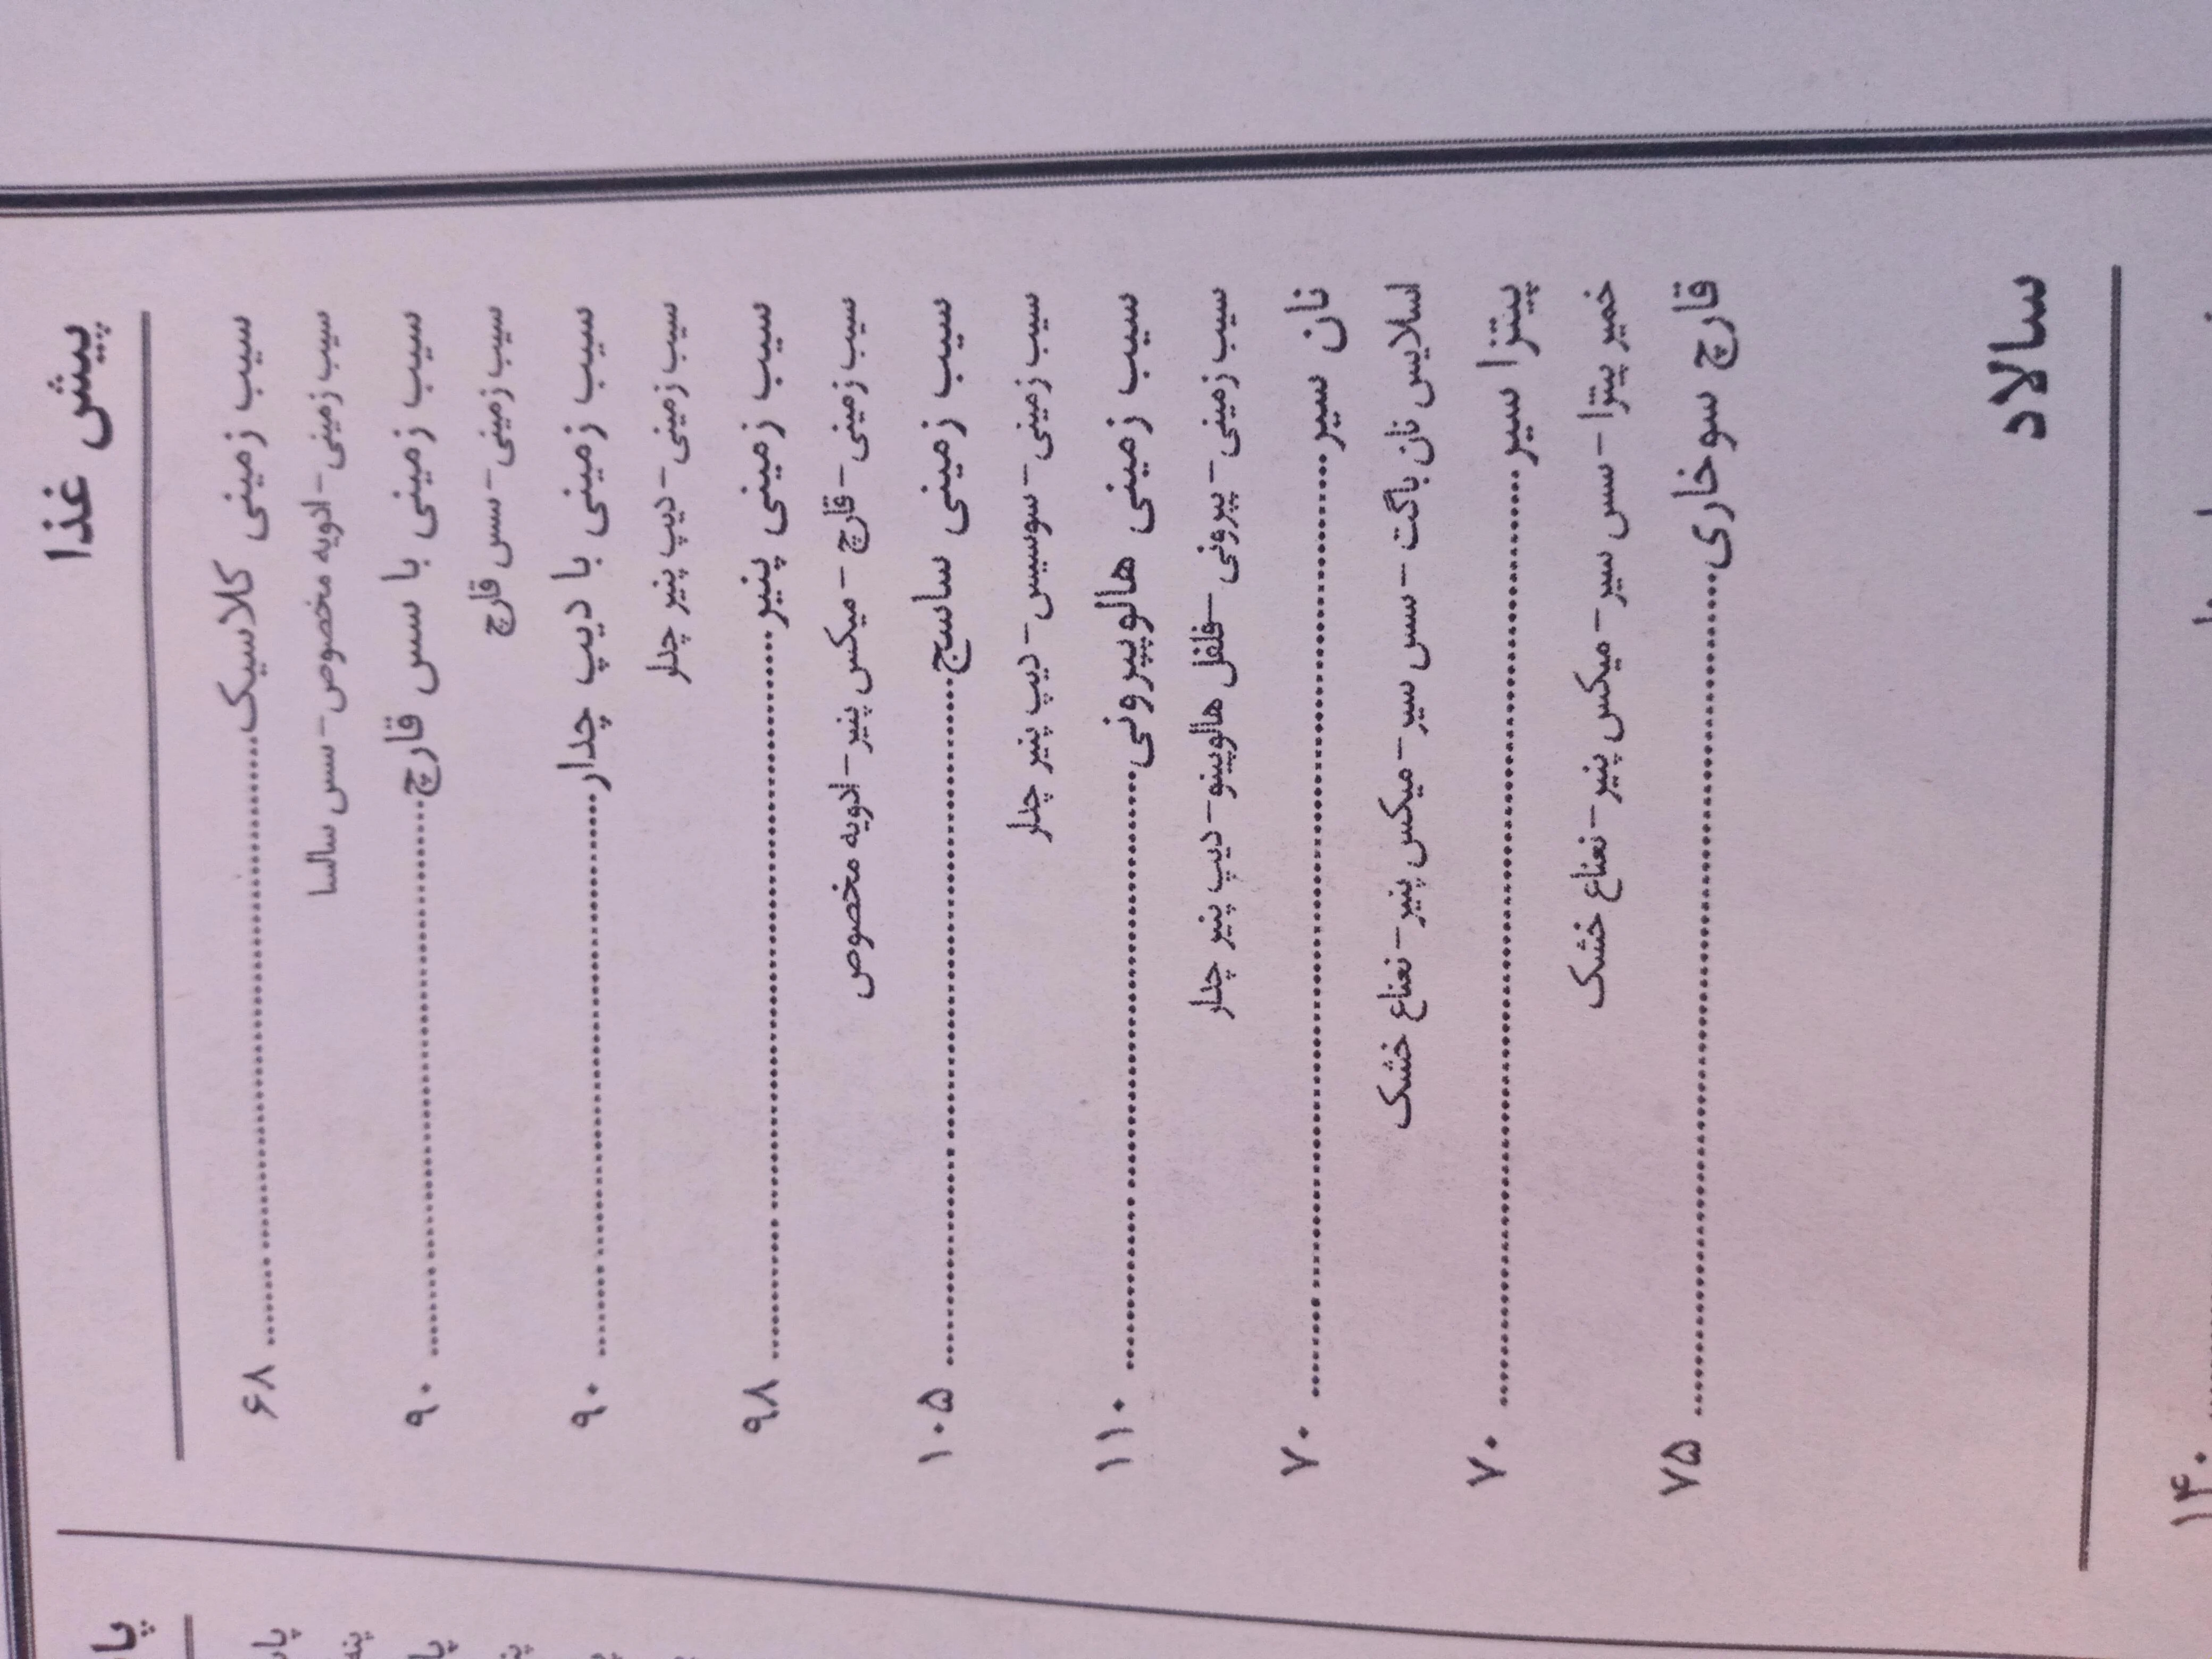 پیش غذا
سیب زمینی کلاسیک........................................................ ۶۸
سیب زمینی-ادویه مخصوص-سس سالسا
سیب زمینی با سس قارچ........................................................ ۹۰
سیب زمینی-سس قارچ
سیب زمینی با دیپ چدار........................................................ ۹۰
سیب زمینی-دیپ پنیر چدار
سیب زمینی پنیر........................................................ ۹۸
سیب زمینی-قارچ-میکس پنیر-ادویه مخصوص
سیب زمینی ساسج........................................................ ۱۰۵
سیب زمینی-سوسیس-دیپ پنیر چدار
سیب زمینی هالوپپرونی........................................................ ۱۱۰
سیب زمینی-پپرونی-فلفل هالوپینو-دیپ پنیر چدار
نان سیر........................................................ ۷۰
اسلایس نان باگت-سس سیر-میکس پنیر-نعناع خشک
پیتزا سیر........................................................ ۷۰
خمیر پیتزا-سس سیر-میکس پنیر-نعناع خشک
قارچ سوخاری........................................................ ۷۵
سالاد
۱۴۰